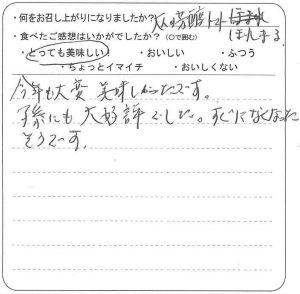 ・何をお召し上がりになりましたか? トマト
・食べたご感想はいかがでしたか? (○で囲む)
・とっても美味しい! ・おいしい ・ふつう
・ちょっとイマイチ ・おいしくない
今年も大変 美味しかったです。
孫にも 大好評でした。すぐになくなった
そうです。